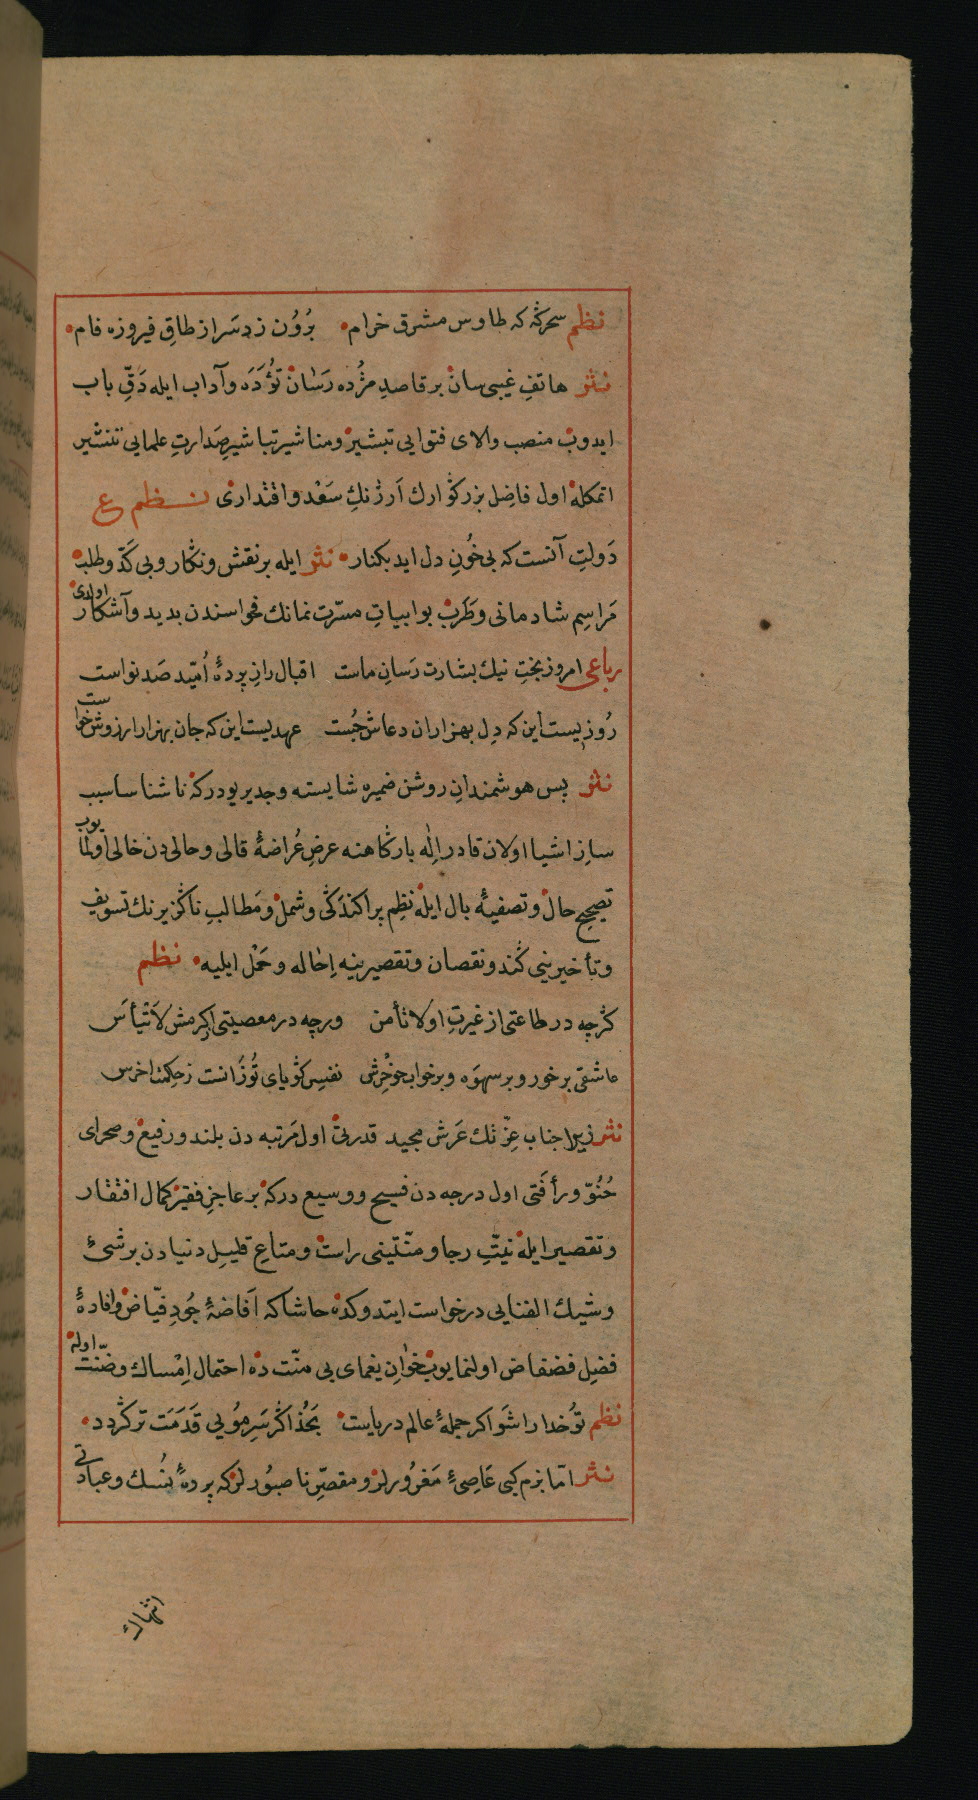 نظم سحرگه كه طاوس مشرق خرام بُرُون زد سَر از طاقِ فيروزه فام
نثر هاتفِ غيبى سان بر قاصدِ مژده رَسَان تؤَدَه وآداب ايله دَقِّ باب
ايدوب منصب والاى فتوايى تبشير ومناشير تباشيرِ صَدارتِ علمايى تنشير
اتمكله اول فاضِل بزركوارك اَرژنكِ سَعْد واقتدارى نظم ع
دَولت آنست كه بى خُونِ دل ايد بكنار نثر ايله بر نقش ونگار وبى كَدّ وطلب
مَراسِم شادمانى وطَرَب بو ابياتِ مسرّت نمانك فحواسندن بديد وآشكار اولدى
رباعى امروز بختِ نيك بشارت رَسانِ ماست اقبال را ز پردهٔ اُمّيد صَد نواست
رُوزيست اين كه دِل بهزاران دعاش جُست عهديست اين كه جان بهزار ارزوش خواست
نثر پس هوشمندانِ روشن ضميره شايسته وجدير بودركه ناشناسا سبب
سازِ اشيا اولان قادر اِلٰه باركاهنه عرضِ عُراضهٔ قالى وحالى دن خالى اولمايوب
تصحيحِ حال وتصفيهٔ بال ايله نظِم پراكندَگى وشمل ومَطالبِ ناگزيرنك تسويف
وتأخيرينى گند ونقصان وتقصيرينه اِحاله وحَمْل ايليه نظم
گرچه در طاعتى از غيرتِ او لا تأمن ورچه در معصيتى اكرمش لا تيأس
عاشقى بر خور وبر سهوَه وبر خواب خوُرش نفسِ گوياى تُو زانست زحكمت اخرس
نثر زيرا جناب عِزّتك عَرش مجيد قدرتى اول مَرتبه دن بلند ورفيع وصحراى
حُنُوّ ورأفتى اول درجه دن فسيح ووسيع دركه بر عاجزِ فقير كمال افتقار
وتقصير ايله نيّتِ رجا ومنّتينى راست ومتاعِ قليلِ دنيادن بر شئ
وشيك الفنايى درخواست ايتدوكده حاشاكه اَفاضهٔ جُودِ فيّاض وافادهٔ
فضلِ فضفاض اولنمايوب خوٰانِ يغماى بى منّت ده احتمال اِمْساك وضنّت اوله
نظم تُو خدا را شَو اكر جملهٔ عالم درياست بَخُدا گر سَرِ موُيى قَدَمَت تر گردد
نثر امّا بزم كبى عَاصِئ مَغرُورلر ومقصّرِ ناصبُورلركه پردهٔ نُسك وعبادتى
انتهاك